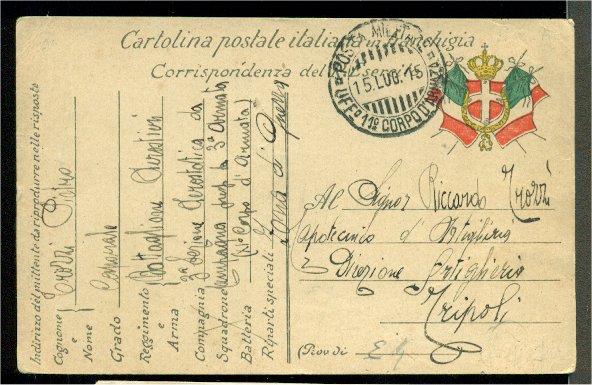 Cartolina postale italiana in franchigia
Corrispondenza del R. Esercito
POSTA MILITARE
15.LUG.15
UFF° 11° CORPO D'ARMATA
Al Signor Riccardo Trozzi
Capotecnico d'Artiglieria
Direzione Artiglieria
Tripoli
(Prov di
Indirizzo del mittente da riprodurre nelle risposte
Cognome Trozzi Pietro
e
Nome
Grado
Reggimento Battaglione Aerostieri
e
Arma
Compagnia Sezione Aerostatica da
Squadrone campagna 3a Armata
Batteria Corpo d'Armata)
Riparti speciali Zona di Guerra